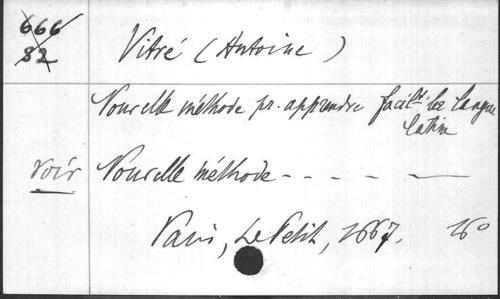 666
82
Vitré (Antoine)
Nouvelle méthode pr. apprendre facilt. la langue
latine
voir Nouvelle méthode - - - - —
Paris, Le Petit, 1667. 16°